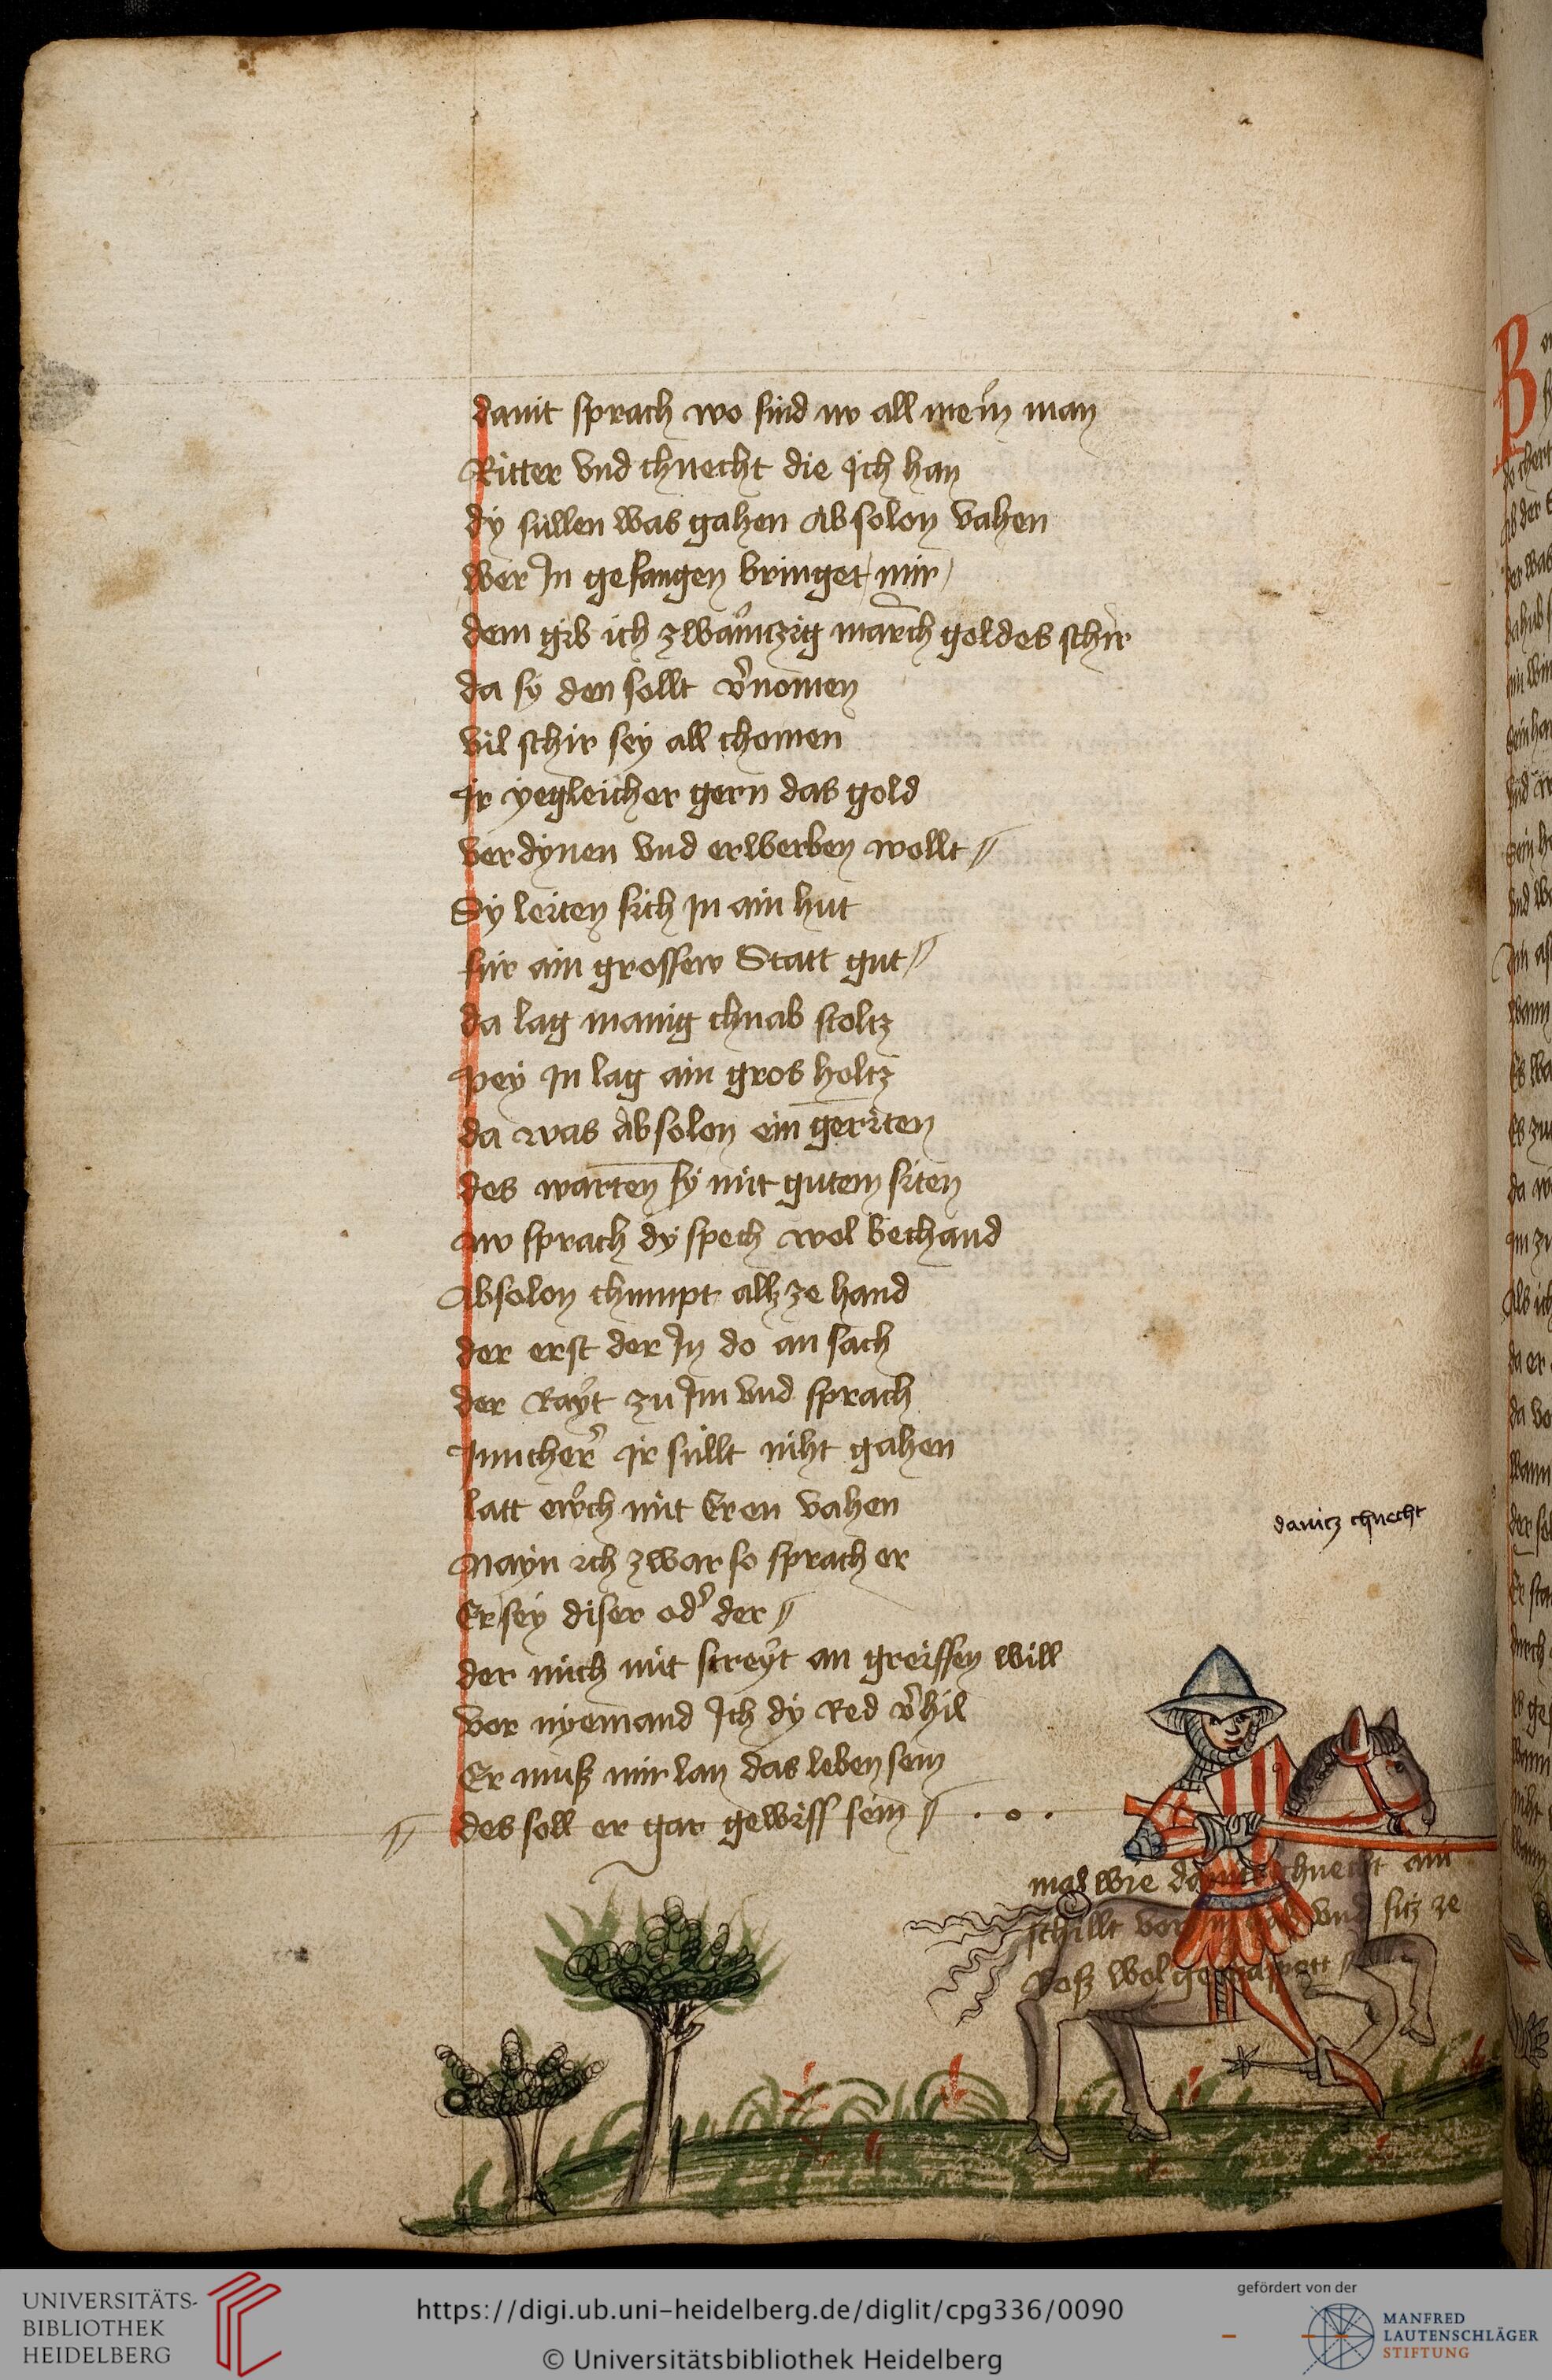 dauit sprach wo sind nv all mein man
Ritter vnd chnecht die Ich han
dy süllen was gahen absolon vahen
wer In gefangen bringet mir
dem gib ich zwaintzig march goldes schir
da sy den sollt v̓nomen
vil schir sey all chomen
Ir yegleicher gern das gold
verdynen vnd erwerben wollt
Sy leiten sich In ain hut
für ain grossew Statt gut
da lag manig chnab stoltz
pey In lag ain gros holtz
da was Absolon ein geriten
des warten sy mit gutem siten
nv sprach dy spech wol bechand
Absolon chumpt allz ze hand
der erst der In do an sach
der Rayt zu Im vnd sprach
Juncher̓ Ir süllt niht gahen
latt ewch mit Eren vahen
nayn ich zwar so sprach er
Er sey diser od̓ der
der mich mit streyt an greiffen will
vor nyemand Ich dy Red v̓hil
Er muß mir lan das leben sein
des soll er gar gewiss sein
dauitz chnecht
mal wie chnecht ain
schillt vor vnd sitz ze
Roß wol
Von
UNIVERSITÄTS-
BIBLIOTHEK
HEIDELBERG
https://digi.ub.uni-heidelberg.de/diglit/cpg336/0090
© Universitätsbibliothek Heidelberg
gefördert von der
MANFRED
LAUTENSCHLÄGER
STIFTUNG